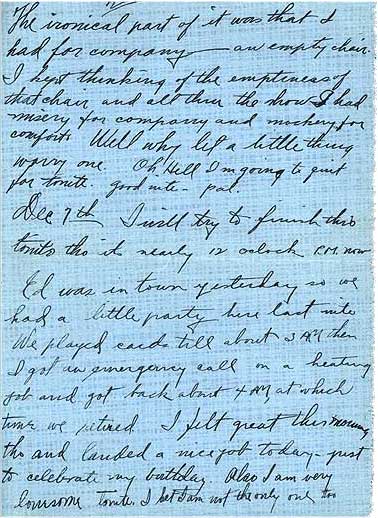 The ironical part of it was that I
had for company — an empty chair.
I kept thinking of the emptiness of
that chair and all thru the show I had
misery for company and mockery for
comfort. Well why let a little thing
worry one. Oh Hell I'm going to quit
for tonite. good nite - pal.
Dec 7th I will try to finish this
tonite tho its nearly 12 oclock P.M. now
Ed was in town yesterday so we
had a little party here last nite
We played cards till about 3 AM then
I got an emergency call on a heating
job and got back about 4 AM at which
time we retired. I felt great this morning
tho and landed a nice job today - just
to celebrate my birthday. Also I am very
lonesome tonite. I bet I am not the only one too